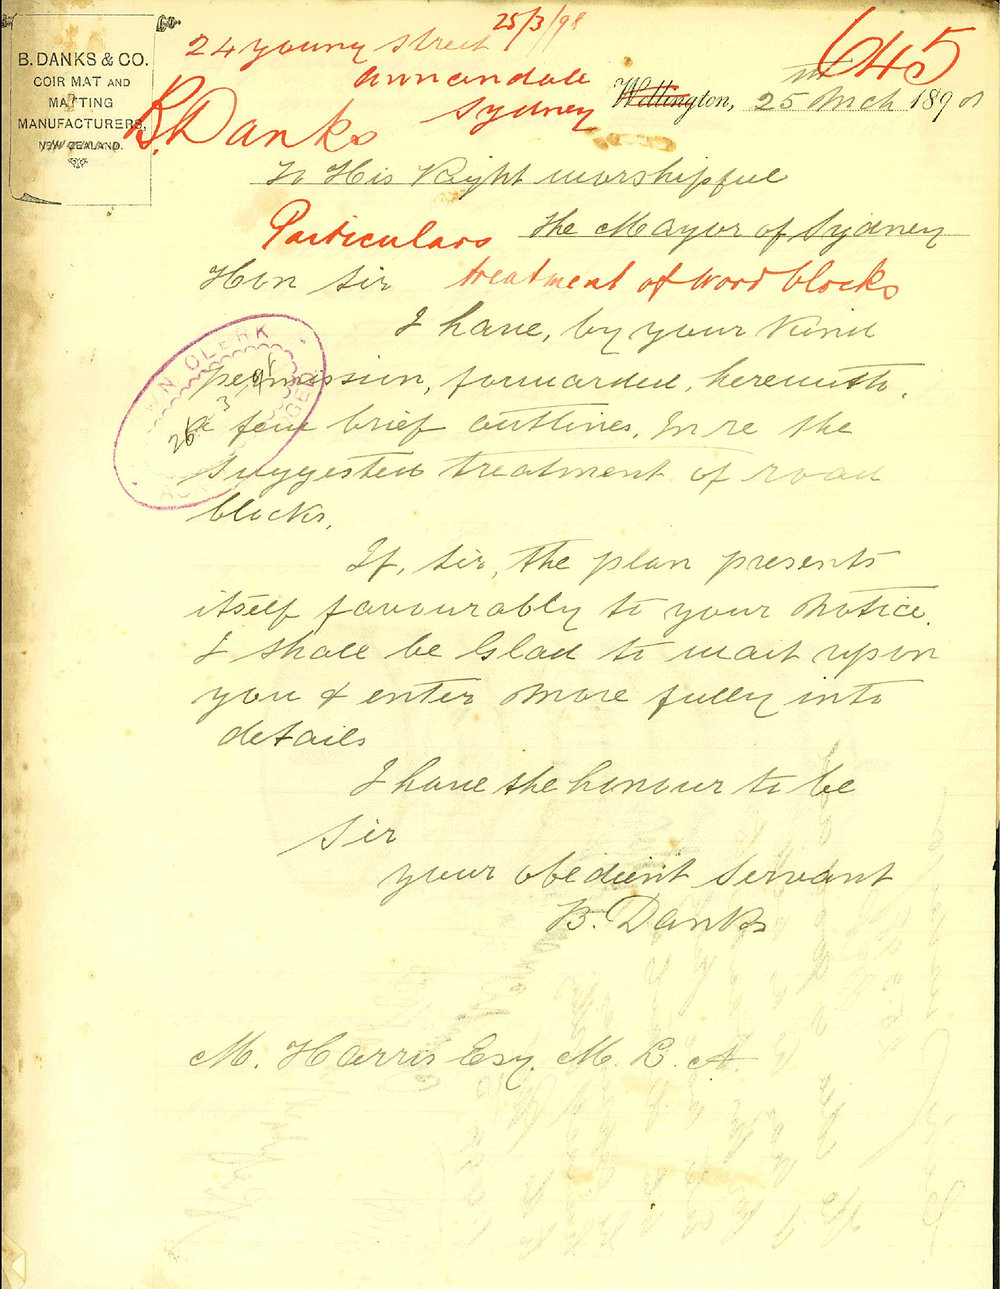 25/3/98
645
B. DANKS & CO.
COIR MAT AND
MATTING
MANUFACTURERS,
NEW ZEALAND.
24 young street
Annandale
Sydney
B. Danks
Wellington, 25th March 1898
To His Right worshipful
the Mayor of Sydney
Particulars
treatment of wood blocks
Hon Sir
I have, by your kind
permission, forwarded, herewith,
a few brief outlines, In re the
suggested treatment of road
blocks.
If, Sir, the plan presents
itself favourably to your Notice.
I shall be Glad to wait upon
you & enter More fully into
details
I have the honour to be
Sir
your obedient servant
B. Danks
M. Harris Esq. M. L. A.
TOWN CLERK
26 3 98